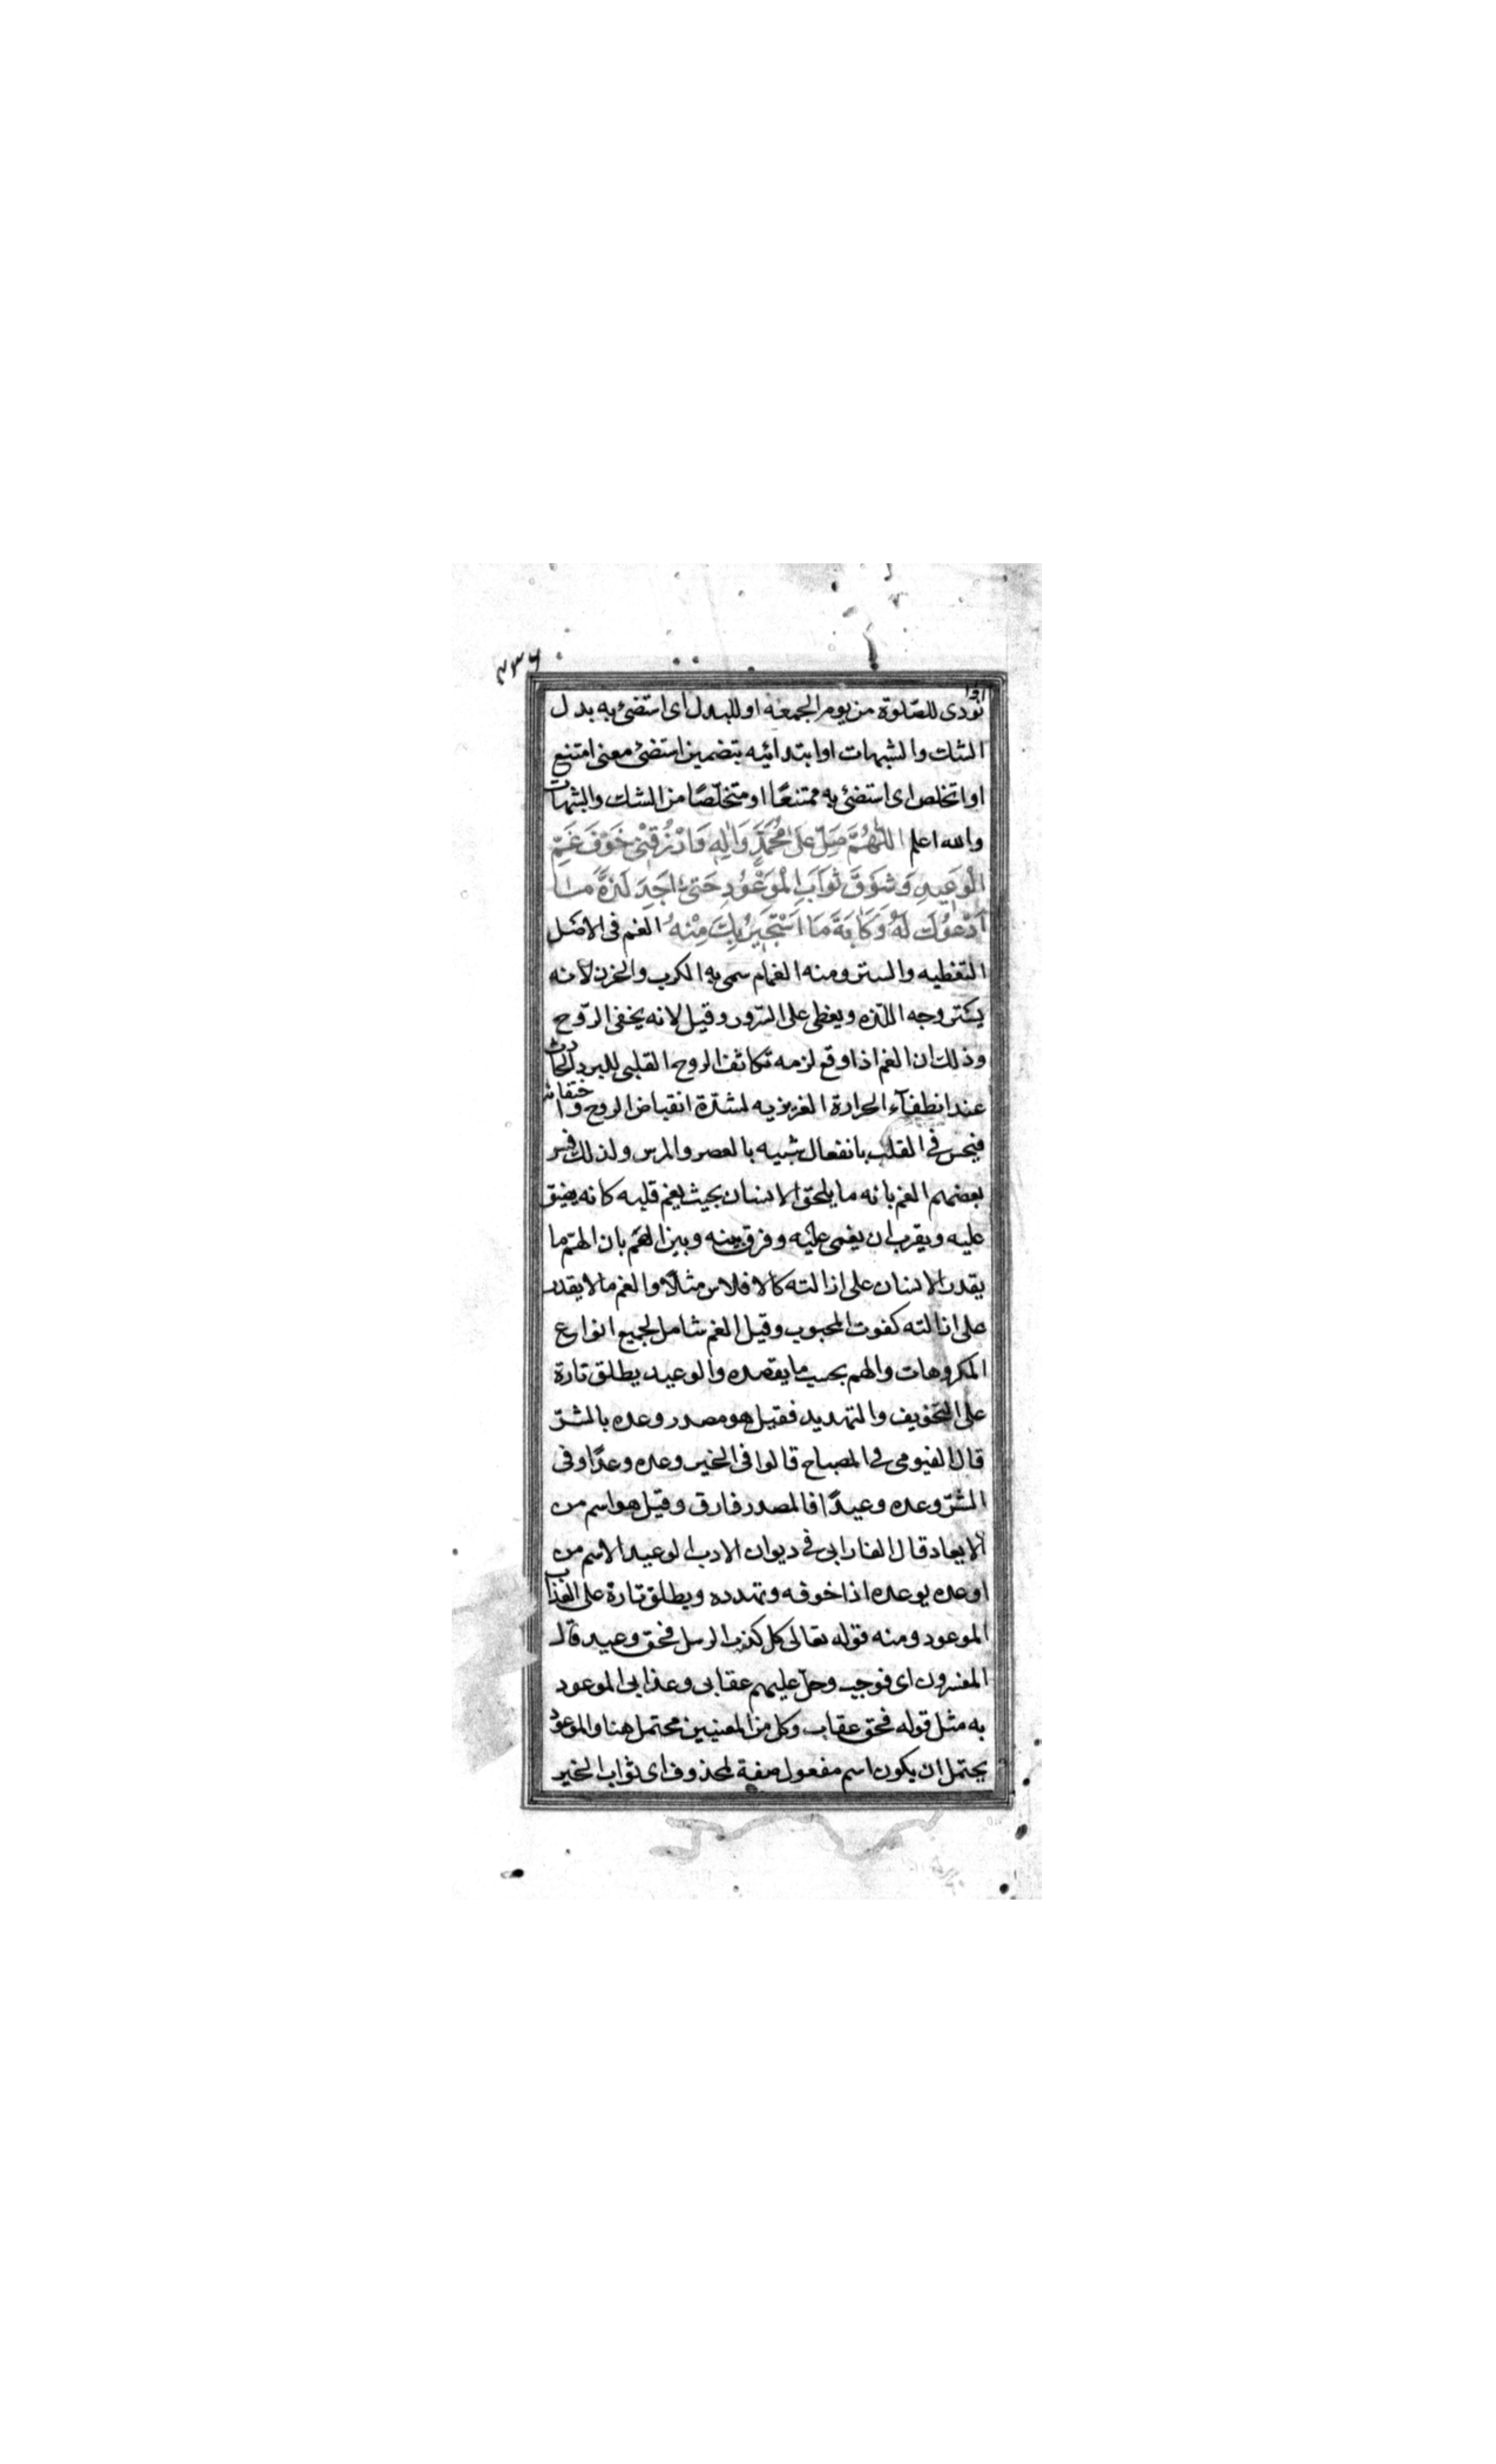 ٢٣٦
اذا
نودى للصّلوة من يوم الجمعه او للبدل اى استضئ به بدل
الشك والشبهات او ابتدائيه بتضمين استضئ معنى امتنع
او اتخلص اى استضئ به ممتنعًا او متخلّصًا من الشك والشبهات
والله اعلم اَللّٰهُمَّ صَلِّ عَلٰى مُحَمَّدٍ وَاٰلِهِ وَارْزُقْنِى خَوْفَ غَمِّ
الْوَعِيدِ وَشَوْقَ ثَوَابِ الْمَوْعُودِ حَتّىٰ اَجِدَ لَذَّةَ مَا
اَدْعُوكَ لَهُ وَكَابَةَ مَا اَسْتَجِيرُ بِكَ مِنْهُ الغم فى الاصل
التغطيه والستر ومنه الغمام سمى به الكرب والحزن لانه
يستر وجه اللذه ويغطى على السّرور وقيل لانه يخفى الرّوح
وذلك ان الغم اذا وقع لزمه تكاثف الروح القلبى للبرد الحادث
عند انطفآء الحرارة الغريزيه لشدّة انقباض الروح واختقانه
فيحس فى القلب بانفعال شبيه بالعصر والمرس ولذلك فسر
بعضهم الغم بانه ما يلحق الانسان بحيث يغم قلبه كانه يضيق
عليه ويقرب ان يغمى عليه وفرق بينه وبين الهَم بان الهمّ ما
يقدر الانسان على ازالته كالافلاس مثلًا والغم ما لا يقدر
على ازالته كفوت المحبوب وقيل الغم شامل لجميع انواع
المكروهات والهم بحسب ما يقصده والوعيد يطلق تارة
على التخويف والتهديد فقيل هو مصدر وعده بالشرّ
قال الفيومى فى المصباح قالوا فى الخير وعده وعدًا وفى
الشرّ وعده وعيدًا فالمصدر فارق وقيل هو اسم من
الايعاد قال الفارابى فى ديوان الادب الوعيد الاسم من
اوعده يوعده اذا خوفه وتهدده ويطلق تارة على العذاب
الموعود ومنه قوله تعالى كل كذب الرسل فحق وعيد قال
المفسرون اى فوجب وحل عليهم عقابى وعذابى الموعود
به مثل قوله فحق عقاب وكل من المعنيين محتمل هنا والموعود
يحتمل ان يكون اسم مفعول صفة لمحذوف اى ثواب الخير